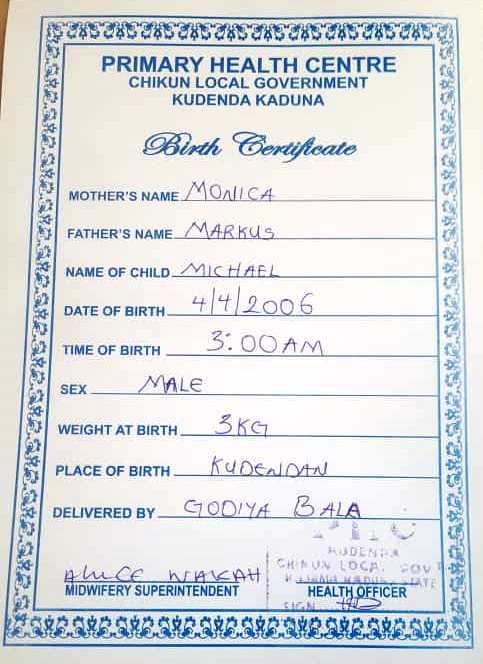 PRIMARY HEALTH CENTRE
CHIKUN LOCAL GOVERNMENT
KUDENDA KADUNA
Birth Certificate
MOTHER'S NAME MONICA
FATHER'S NAME MARKUS
NAME OF CHILD MICHAEL
DATE OF BIRTH 4/4/2006
TIME OF BIRTH 3:00AM
SEX MALE
WEIGHT AT BIRTH 3KG
PLACE OF BIRTH KUDENDAN
DELIVERED BY GODIYA BALA
PHC
KUDENDA
CHIKUN LOCAL GOVT
STATE
MIDWIFERY SUPERINTENDENT
HEALTH OFFICER
SIGN